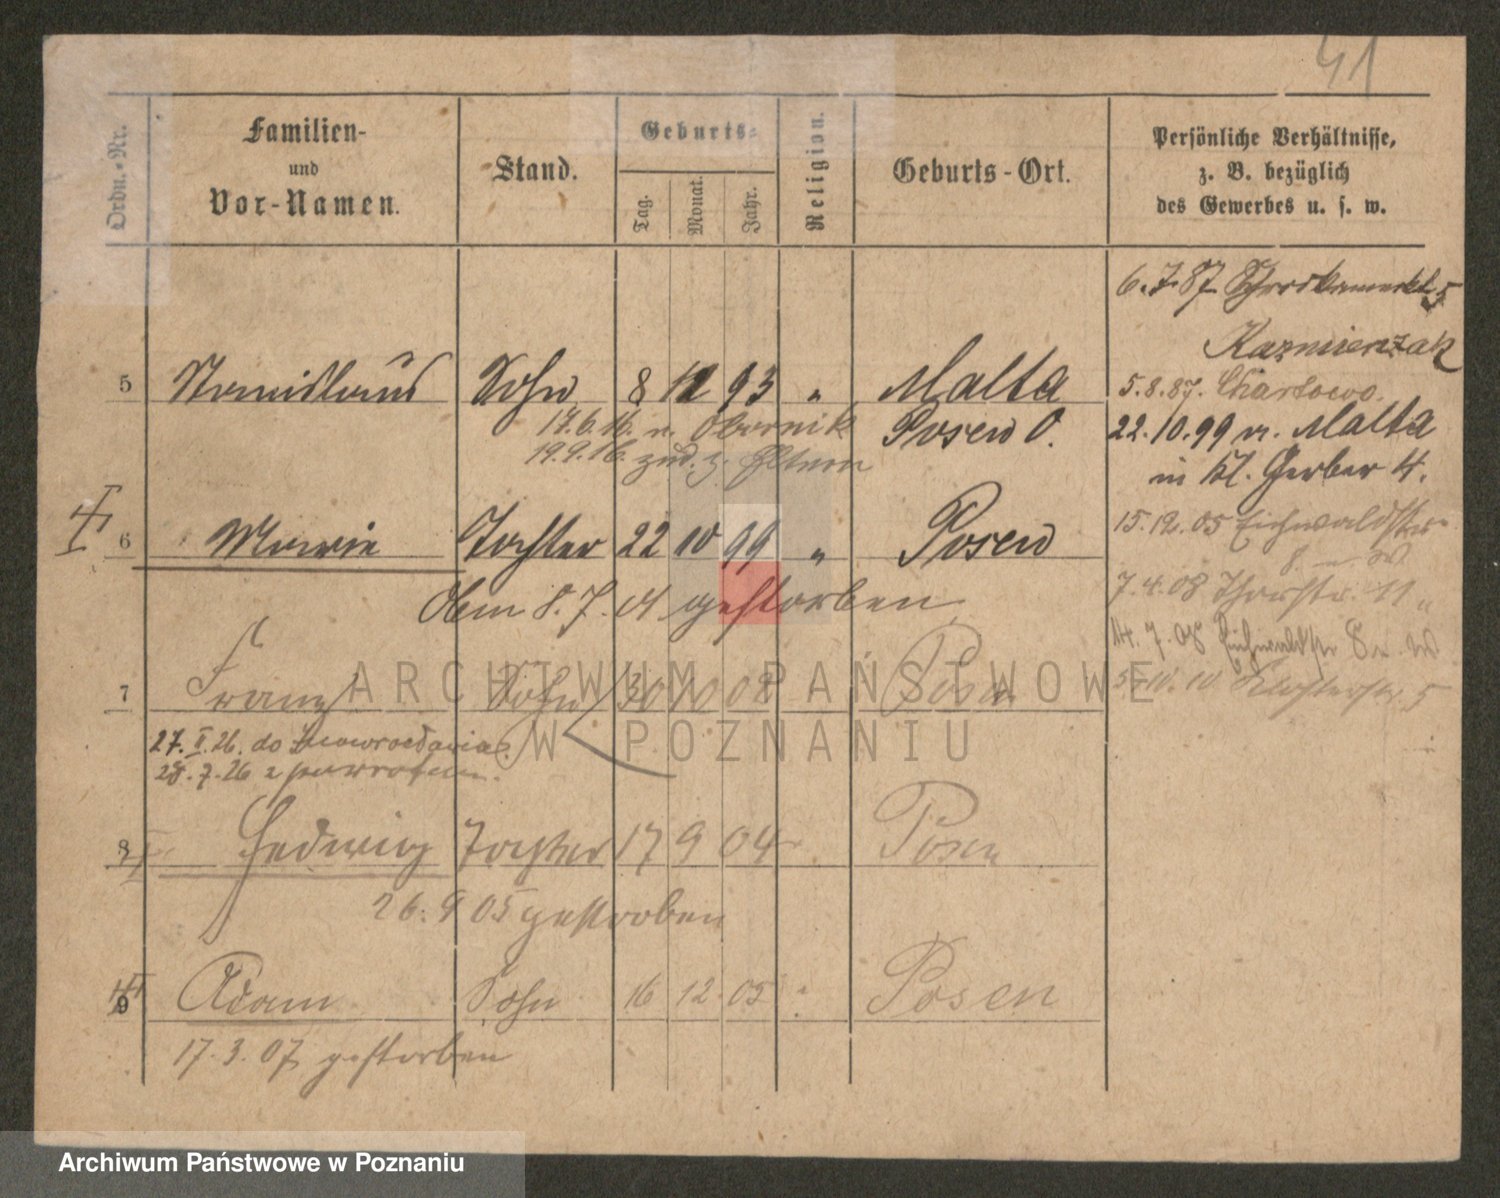 41
Ordn.-Nr.
Familien-
und
Vor-Namen.
Stand.
Geburts-
Tag.
Monat.
Jahr.
Religion.
Geburts-Ort.
Persönliche Verhältnisse,
z. B. bezüglich
des Gewerbes u. s. w.
6.7.87
5
Kazmierzak
5 Stanislaus Sohn 8 93 " Malta
5.8.87. Chartowo.
17.6.16. n. Obornik Posen O.
22.10.99 v. Malta
19.9.16. zur. z. Eltern
in Kl. Gerber 4.
6 Marie Tochter 22 10 99 " Posen
15.12.05 Eichwaldstr.
8
am 8.7.01 gestorben
7.4.08 Thorstr. 11 "
14.7.08 Eichwaldstr 8
7 Franz Sohn 30 10 02 Posen
5.10.10 Klosterstr. 5
27.II.26. do Inowrocławia
28.7.26 z powrotem.
8 Hedwig Tochter 17 9 04 Posen
26.9 05 gestorben
9 Adam Sohn 16 12 05 " Posen
17.3.07 gestorben
ARCHIWUM PAŃSTWOWE
W POZNANIU
Archiwum Państwowe w Poznaniu